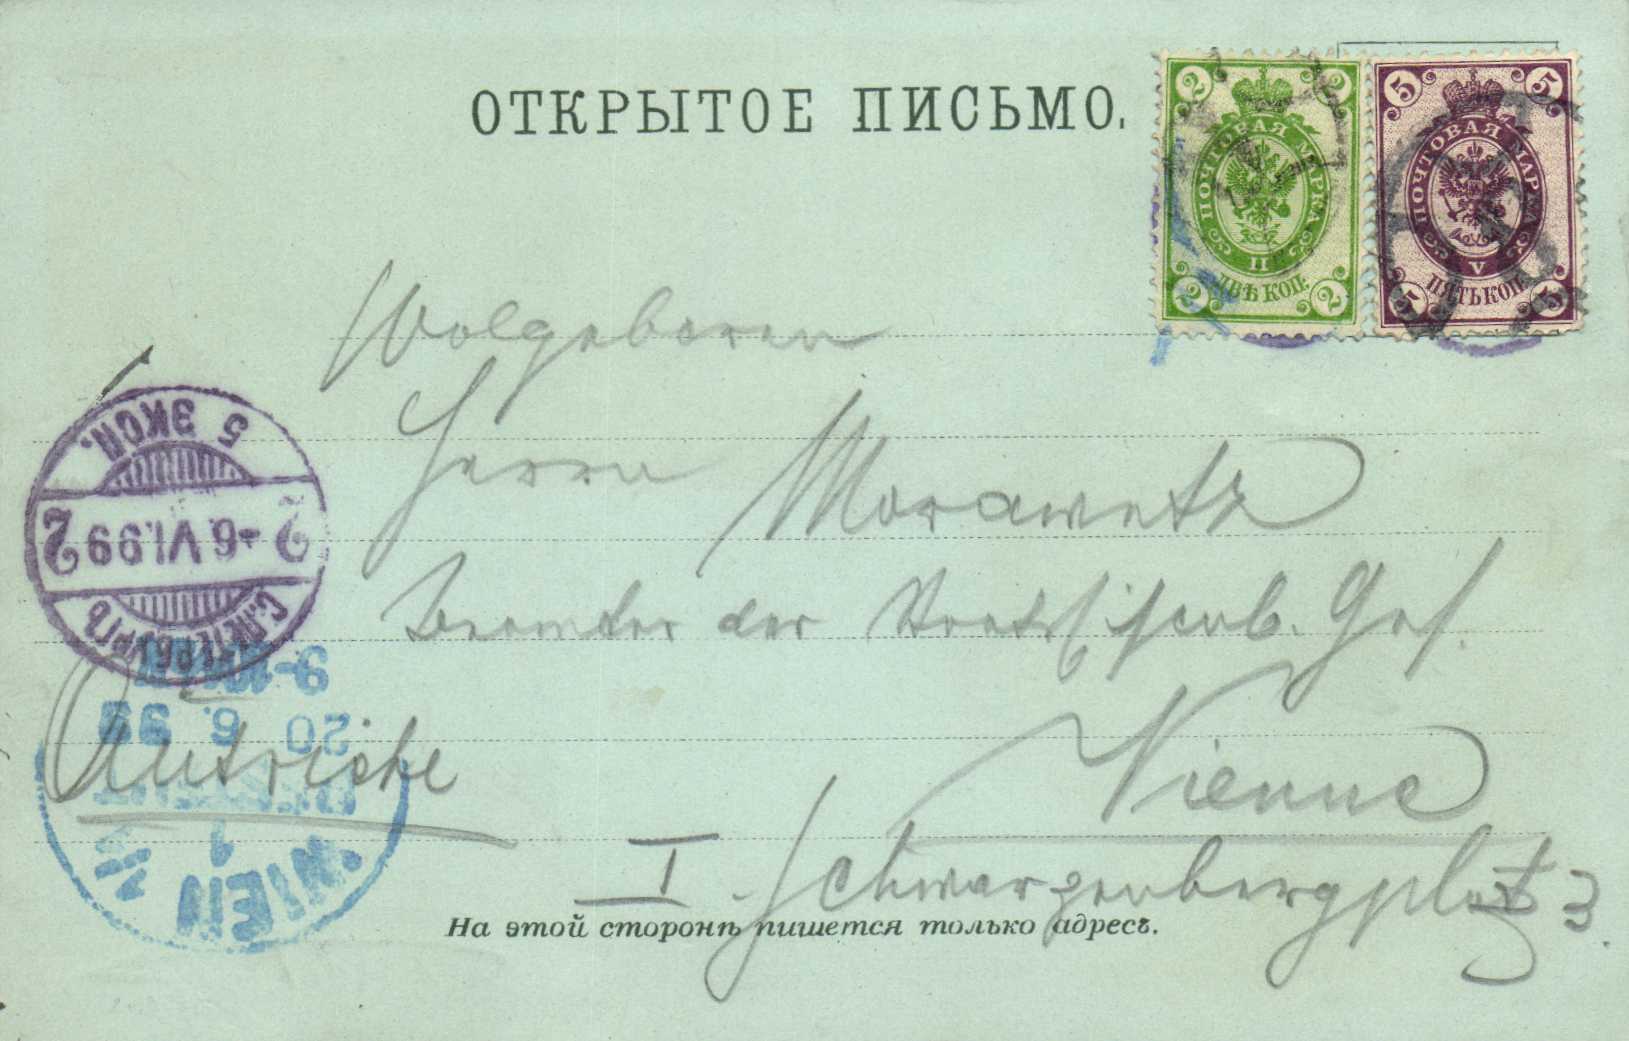 ОТКРЫТОЕ ПИСЬМО.
2 2
ПОЧТОВАЯ МАРКА
II
ДВѢ КОП.
2 2
5 5
ПОЧТОВАЯ МАРКА
V
ПЯТЬ КОП.
5 5
Wolgeboren
Herrn Morawetz
Beamter der Ges.
Autriche
Vienne
I Schwarzenbergplatz 3.
На этой сторонѣ пишется только адресъ.
С.ПЕТЕРБУРГЪ
2 -6.VI.99 2
5 ЭКСП.
WIEN 1/1
1
BESTELLT
20 6. 99